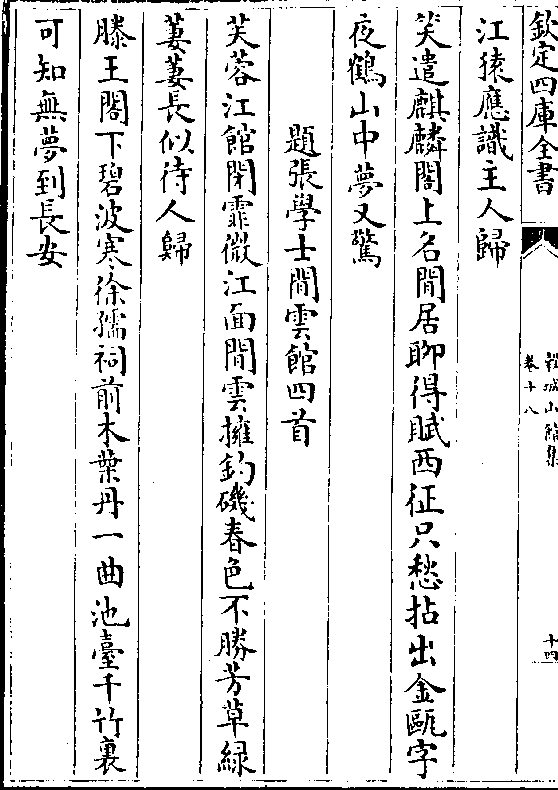 欽定四庫全書
穀城山館集
卷十八
十四
江猿應識主人歸
笑遣麒麟閣上名閒居聊得賦西征只愁拈出金甌字
夜鶴山中夢又驚
題張學士閒雲館四首
芙蓉江館閉霏微江面閒雲擁釣磯春色不勝芳草緑
萋萋長似待人歸
滕王閣下碧波寒徐孺祠前木葉丹一曲池臺千竹裏
可知無夢到長安